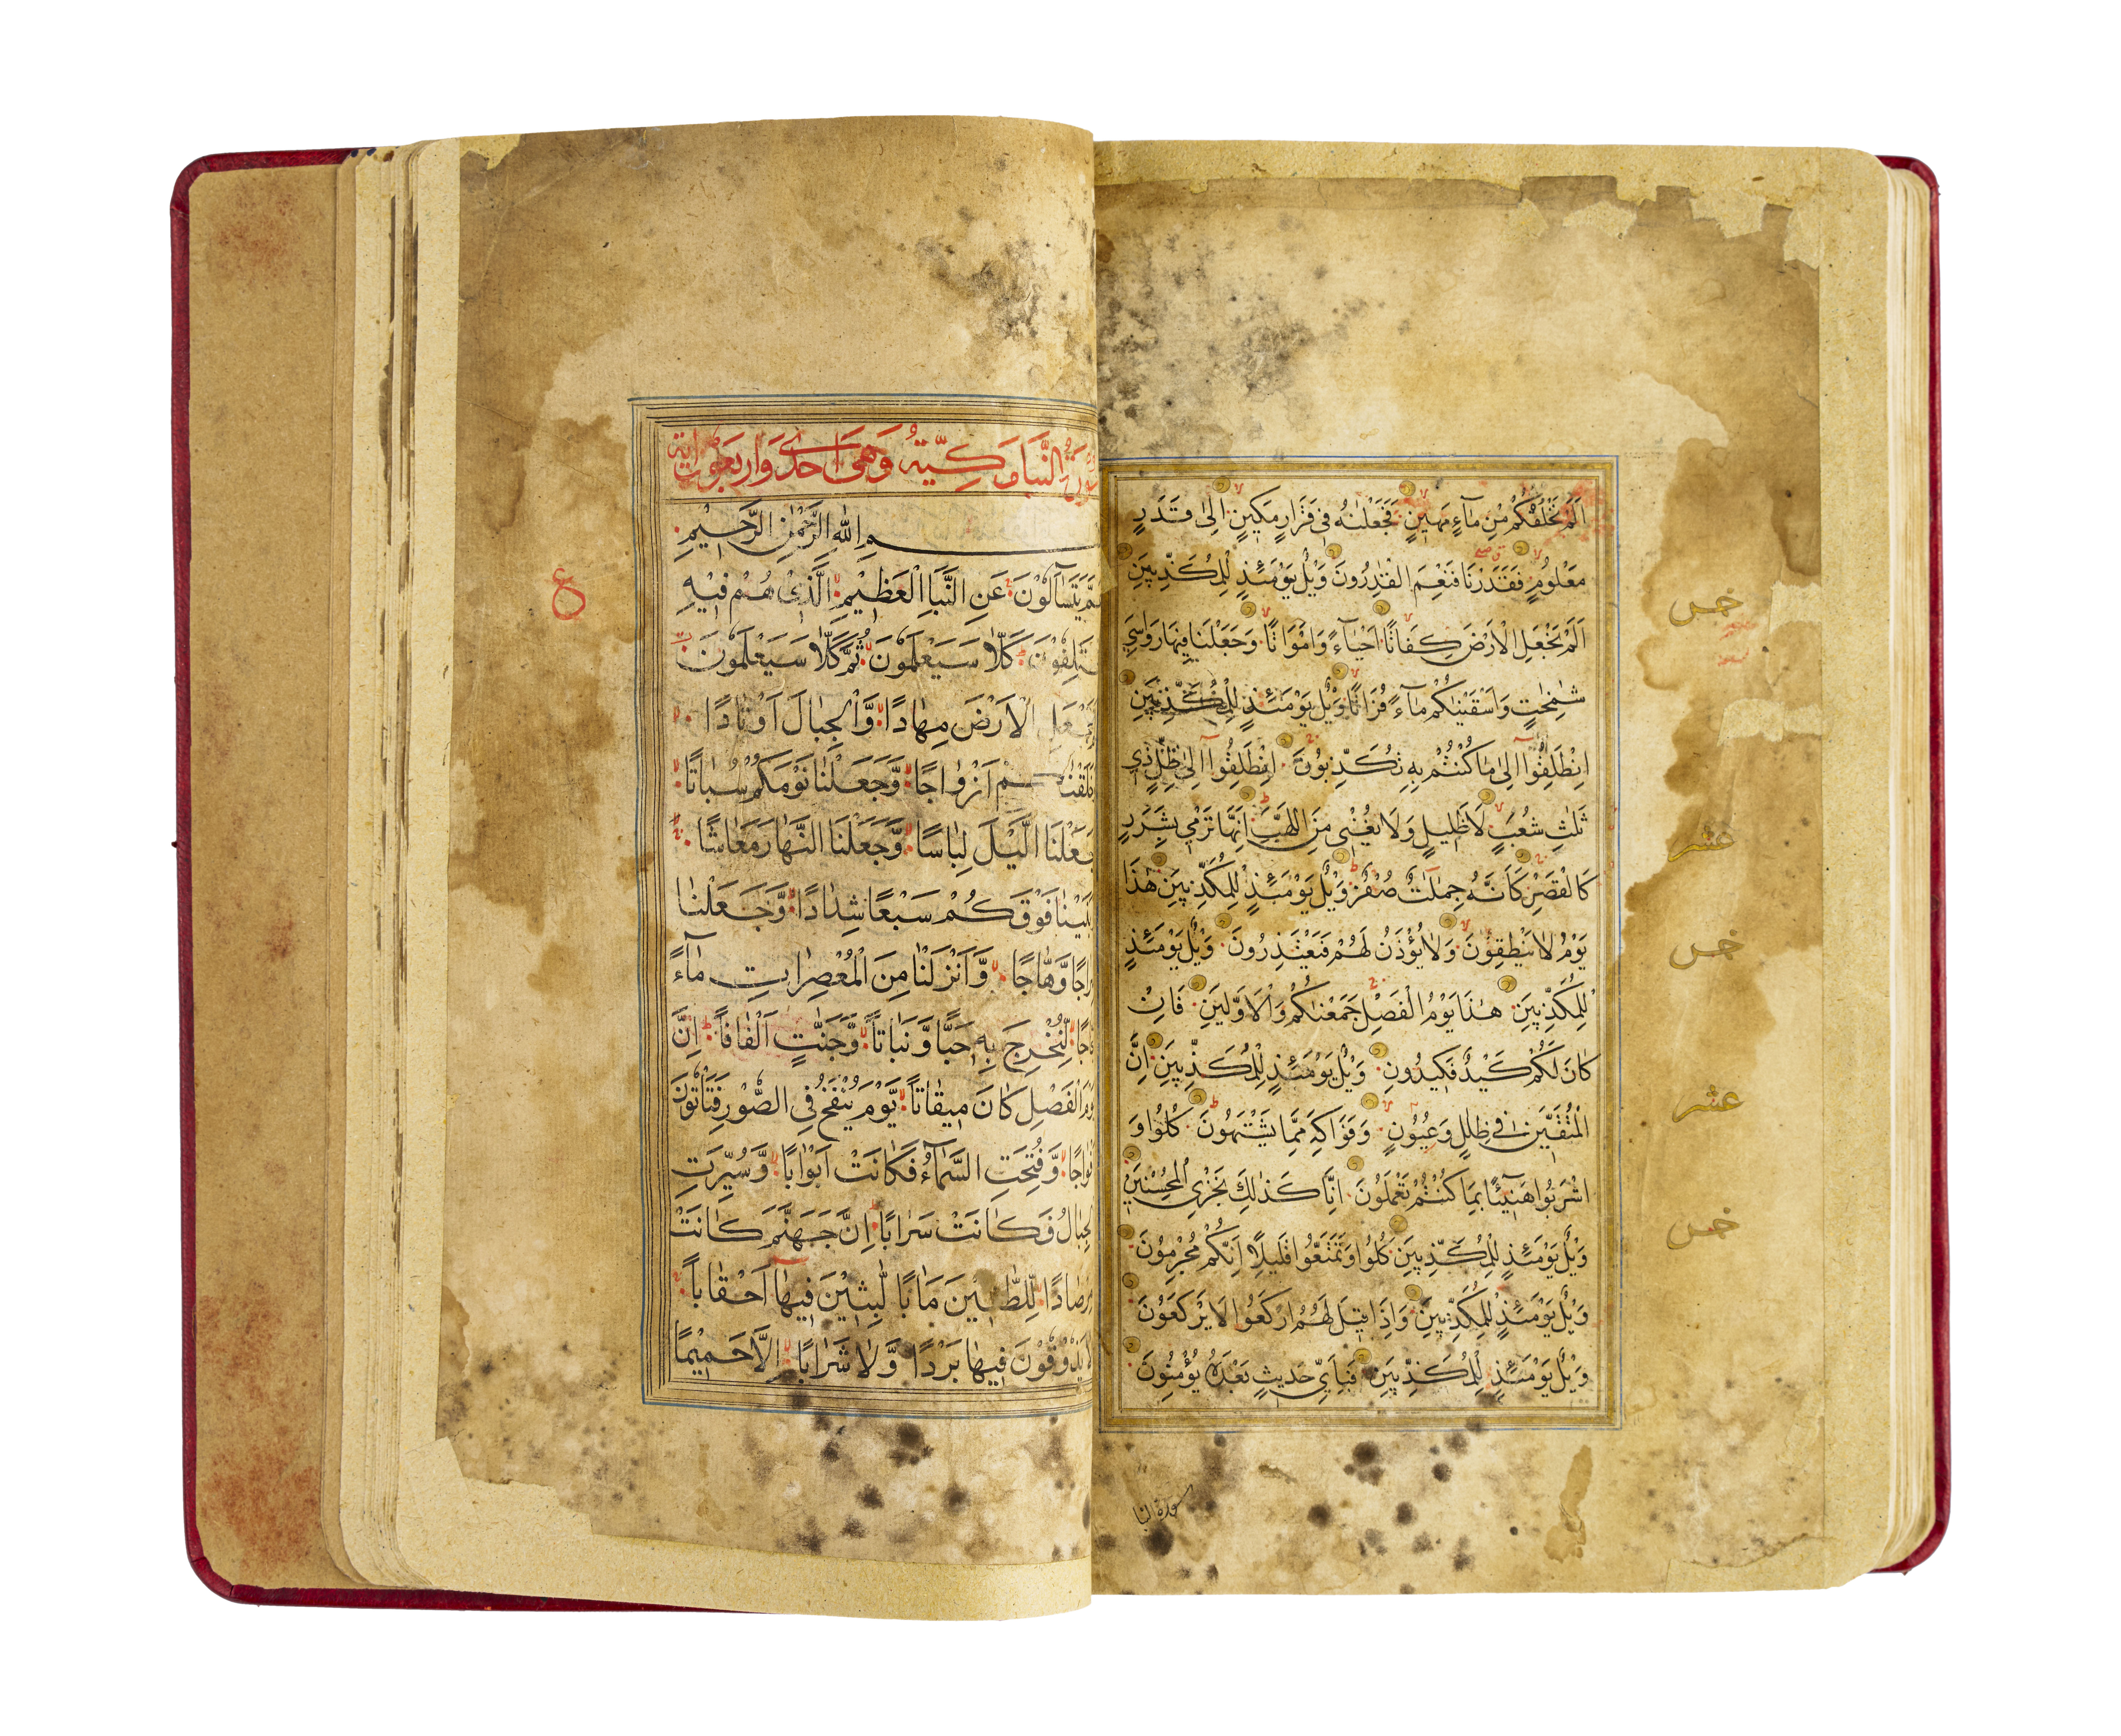 اَلَمْ نَخْلُقْكُمْ مِنْ مَآءٍ مَهِينٍ فَجَعَلْنٰهُ فِى قَرَارٍ مَكِينٍ اِلٰى قَدَرٍ
مَعْلُومٍ فَقَدَرْنَا فَنِعْمَ الْقٰدِرُونَ وَيْلٌ يَوْمَئِذٍ لِلْمُكَذِّبِينَ
اَلَمْ نَجْعَلِ الْاَرْضَ كِفَاتًا اَحْيَآءً وَاَمْوَاتًا وَجَعَلْنَا فِيهَا رَوَاسِيَ
شٰمِخٰتٍ وَاَسْقَيْنٰكُمْ مَآءً فُرَاتًا وَيْلٌ يَوْمَئِذٍ لِلْمُكَذِّبِينَ
اِنْطَلِقُوٓا اِلٰى مَا كُنْتُمْ بِهِ تُكَذِّبُونَ اِنْطَلِقُوٓا اِلٰى ظِلٍّ ذِي
ثَلٰثِ شُعَبٍ لَا ظَلِيلٍ وَلَا يُغْنِى مِنَ اللَّهَبِ اِنَّهَا تَرْمِى بِشَرَرٍ
كَالْقَصْرِ كَاَنَّهُ جِمٰلَتٌ صُفْرٌ وَيْلٌ يَوْمَئِذٍ لِلْمُكَذِّبِينَ هٰذَا
يَوْمُ لَا يَنْطِقُونَ وَلَا يُؤْذَنُ لَهُمْ فَيَعْتَذِرُونَ وَيْلٌ يَوْمَئِذٍ
لِلْمُكَذِّبِينَ هٰذَا يَوْمُ الْفَصْلِ جَمَعْنٰكُمْ وَالْاَوَّلِينَ فَاِنْ
كَانَ لَكُمْ كَيْدٌ فَكِيدُونِ وَيْلٌ يَوْمَئِذٍ لِلْمُكَذِّبِينَ اِنَّ
الْمُتَّقِينَ فِى ظِلٰلٍ وَعُيُونٍ وَفَوَاكِهَ مِمَّا يَشْتَهُونَ كُلُوا وَ
اشْرَبُوا هَنِيٓئًا بِمَا كُنْتُمْ تَعْمَلُونَ اِنَّا كَذٰلِكَ نَجْزِى الْمُحْسِنِينَ
وَيْلٌ يَوْمَئِذٍ لِلْمُكَذِّبِينَ كُلُوا وَتَمَتَّعُوا قَلِيلًا اِنَّكُمْ مُجْرِمُونَ
وَيْلٌ يَوْمَئِذٍ لِلْمُكَذِّبِينَ وَاِذَا قِيلَ لَهُمُ ارْكَعُوا لَا يَرْكَعُونَ
وَيْلٌ يَوْمَئِذٍ لِلْمُكَذِّبِينَ فَبِاَيِّ حَدِيثٍ بَعْدَهُ يُؤْمِنُونَ
خمس
عشر
خمس
عشر
خمس
سورة النبا
سورة النَّبَأ مَكِّيّة وَهِىَ اَحَدى وَاَربَعُونَ اية
بِسْمِ اللهِ الرَّحْمٰنِ الرَّحِيْمِ
عَمَّ يَتَسَآءَلُوْنَ عَنِ النَّبَاِ الْعَظِيْمِ الَّذِىْ هُمْ فِيْهِ
مُخْتَلِفُوْنَ كَلَّا سَيَعْلَمُوْنَ ثُمَّ كَلَّا سَيَعْلَمُوْنَ
نَجْعَلِ الْاَرْضَ مِهٰادًا وَّالْجِبٰالَ اَوْتٰادًا
خَلَقْنٰكُمْ اَزْوٰاجًا وَّجَعَلْنٰا نَوْمَكُمْ سُبٰاتًا
جَعَلْنَا الَّيْلَ لِبٰاسًا وَّجَعَلْنَا النَّهٰارَ مَعٰاشًا
بَنَيْنٰا فَوْقَكُمْ سَبْعًا شِدٰادًا وَّجَعَلْنٰا
رٰاجًا وَّهّٰاجًا وَّاَنْزَلْنٰا مِنَ الْمُعْصِرٰاتِ مٰآءً
جًا لِّنُخْرِجَ بِهِ حَبًّا وَّنَبٰاتًا وَّجَنّٰتٍ اَلْفٰافًا اِنَّ
يَوْمَ الْفَصْلِ كٰانَ مِيقٰاتًا يَّوْمَ يُنْفَخُ فِى الصُّوْرِ فَتَأْتُوْنَ
فْوٰاجًا وَّفُتِحَتِ السَّمٰآءُ فَكٰانَتْ اَبْوٰابًا وَّسُيِّرَتِ
الْجِبٰالُ فَكٰانَتْ سَرٰابًا اِنَّ جَهَنَّمَ كٰانَتْ
مِرْصٰادًا لِّلطّٰاغِيْنَ مَاٰبًا لّٰبِثِيْنَ فِيهٰا اَحْقٰابًا
لَا يَذُوْقُوْنَ فِيهٰا بَرْدًا وَّلٰا شَرٰابًا اِلَّا حَمِيْمًا
ع